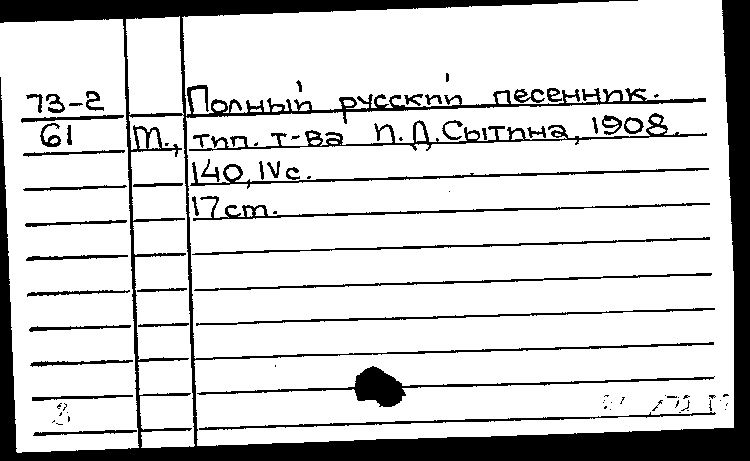 73-2 Полный русский песенник.
61 М., тип. т-ва И.Д.Сытина, 1908.
140, IV с.
17 cm.
3